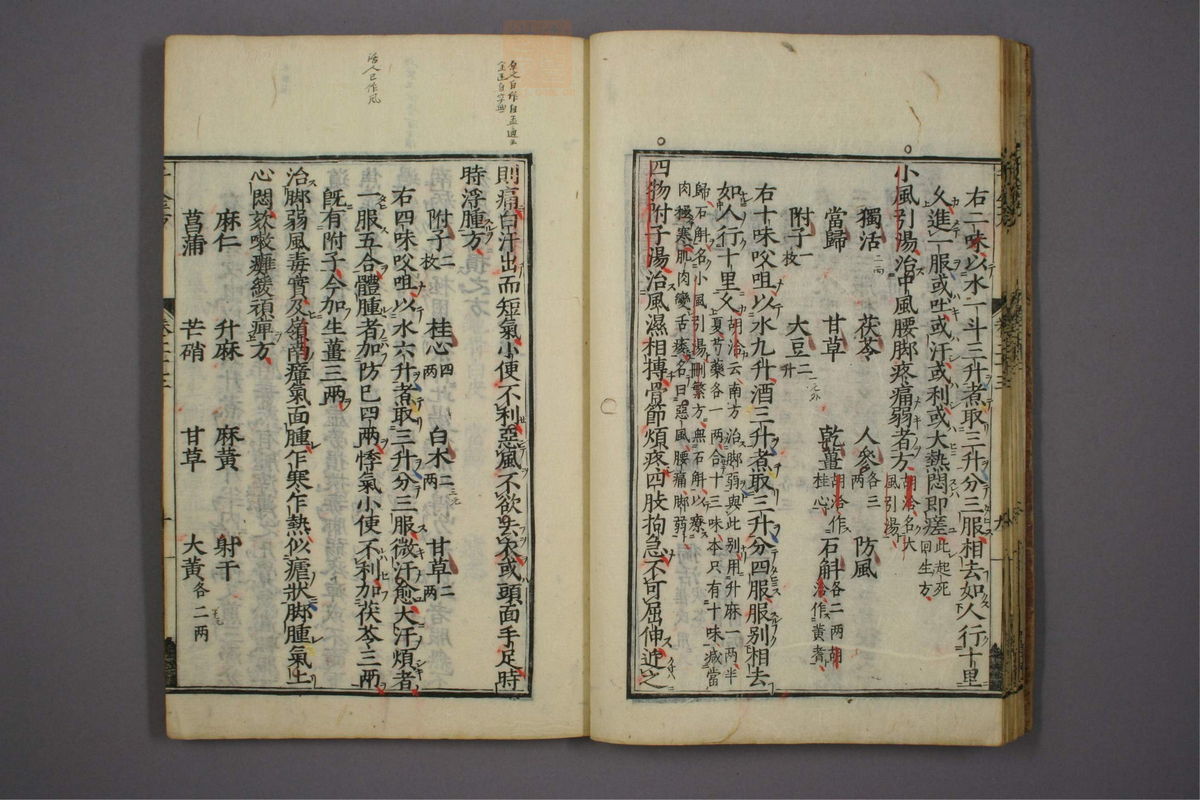 右二味以水一斗三升煮取三升分三服相去如人行十里
久進一服或吐或汗或利或大熱悶即瘥此起死回生方
小風引湯治中風腰脚疼痛弱者方胡洽名大風引湯
獨活二兩 茯苓 人參各三兩 防風
當歸 甘草 乾薑胡洽作桂心 石斛各二兩胡洽作黃耆
附子一枚 大豆二升
右十味㕮咀以水九升酒三升煮取三升分四服服别相去
如人行十里久胡洽云南方治脚弱與此别用升麻一兩半
夏芍藥各一兩合十三味本只有十味减當
歸石斛名小風引湯刪繁方無石斛以療
肉極寒肌肉變舌痿名曰惡風腰痛脚弱
四物附子湯治風濕相搏骨節煩疼四肢拘急不可屈伸近之
則痛白汗出而短氣小便不利惡風不欲去衣或頭面手足時
時浮腫方
附子二枚 桂心四兩 白术三兩 甘草二兩
右四味㕮咀以水六升煮取三升分三服微汗愈大汗煩者
一服五合體腫者加防已四兩悸氣小便不利加茯苓三兩
旣有附子今加生薑三兩
治脚弱風毒實及嶺南瘴氣面腫乍寒乍熱似瘧狀脚腫氣上
心悶欬嗽癱緩頑痺方
麻仁 升麻 麻黃 射干
菖蒲 芒硝 甘草 大黃各二兩
活人已作風